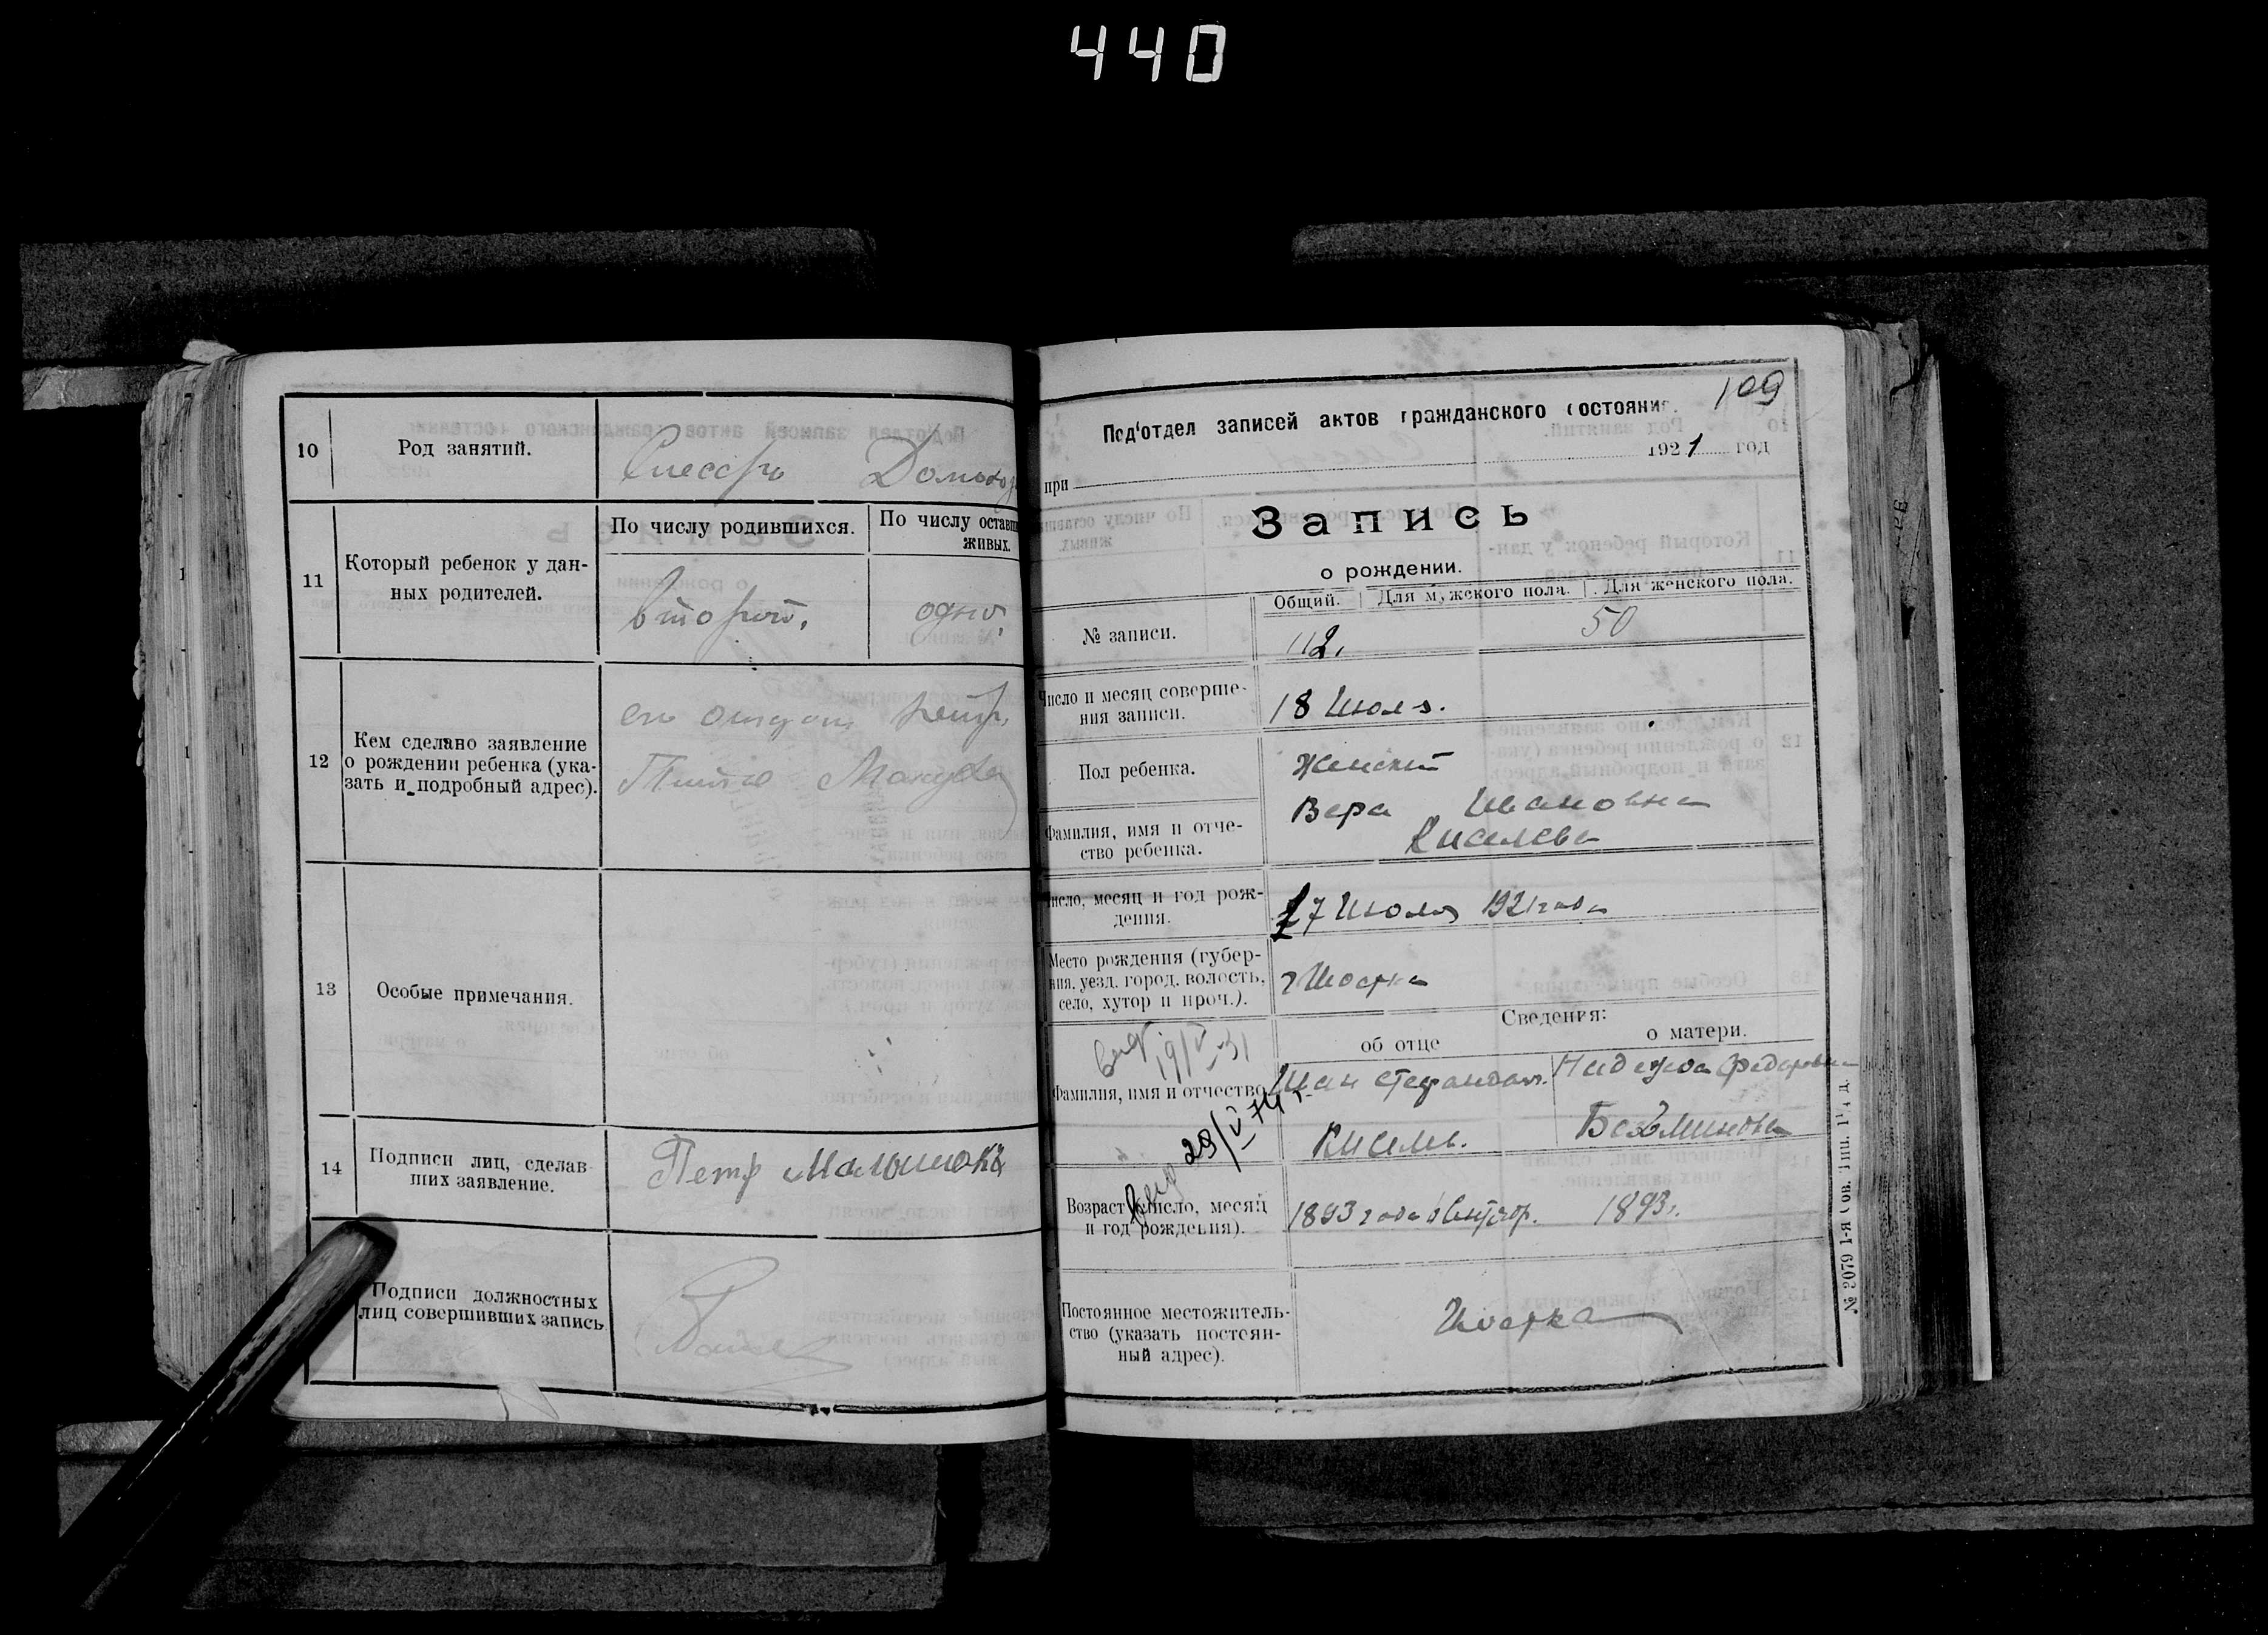 440
10
Род занятий.
Слесарь
11
Который ребенок у дан-
ных родителей.
По числу родившихся.
По числу оставши
живых.
второй.
одно.
12
Кем сделано заявление
о рождении ребенка (ука-
зать и подробный адрес).
13
Особые примечания.
14
Подписи лиц, сделав
ших заявление.
Петр
Подписи должностных
лиц совершивших запись
109
Под'отдел записей актов гражданского состояния.
при 1921 год
Запись
о рождении.
№ записи.
Общий. Для мужского пола. Для женского пола.
112. 50
Число и месяц соверше-
ния записи.
18 Июля.
Пол ребенка.
Женский
Фамилия, имя и отче-
ство ребенка.
Вера Ивановна
Киселева
число, месяц и год рож-
дения.
17 Июля 1921 года
Место рождения (губер-
ния, уезд, город, волость,
село, хутор и проч.).
г Шостка
Сведения:
об отце
о матери.
19/V-31
Фамилия, имя и отчество
29/V 74 г.
Иван Стефанов.
Кисель.
Надежда Федоровна
Возраст (число, месяц
и год рождения).
1893 года
1893.
Постоянное местожитель-
ство (указать постоян-
ный адрес).
Шостка
№ 3079 1-я Сов. Тип.